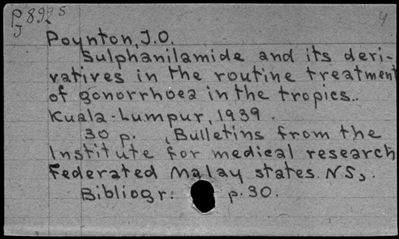 P 892s
J
4
Poynton, J.O.
Sulphanilamide and its deri-
vatives in the routine treatment
of gonorrhoea in the tropics..
Kuala-Lumpur, 1939.
30 p. (Bulletins from the
Institute for medical research
Federated Malay states. N.S,
Bibliogr: p. 30.